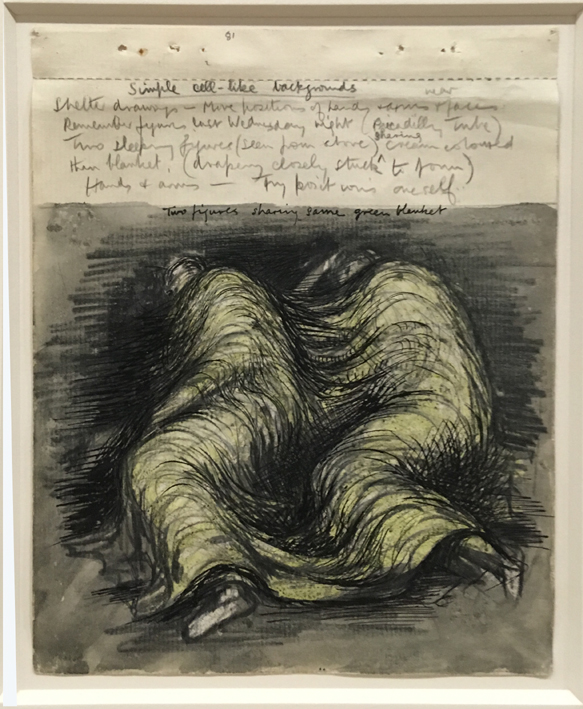 81
Simple cell-like backgrounds
near
Shelter drawings – More positions of hands & arms & faces
Remember figures last Wednesday night (Piccadilly Tube)
Two sleeping figures (seen from above) sharing cream coloured
thin blanket (drapery closely stuck to form)
Hands & arms – Try positions oneself.
Two figures sharing same green blanket